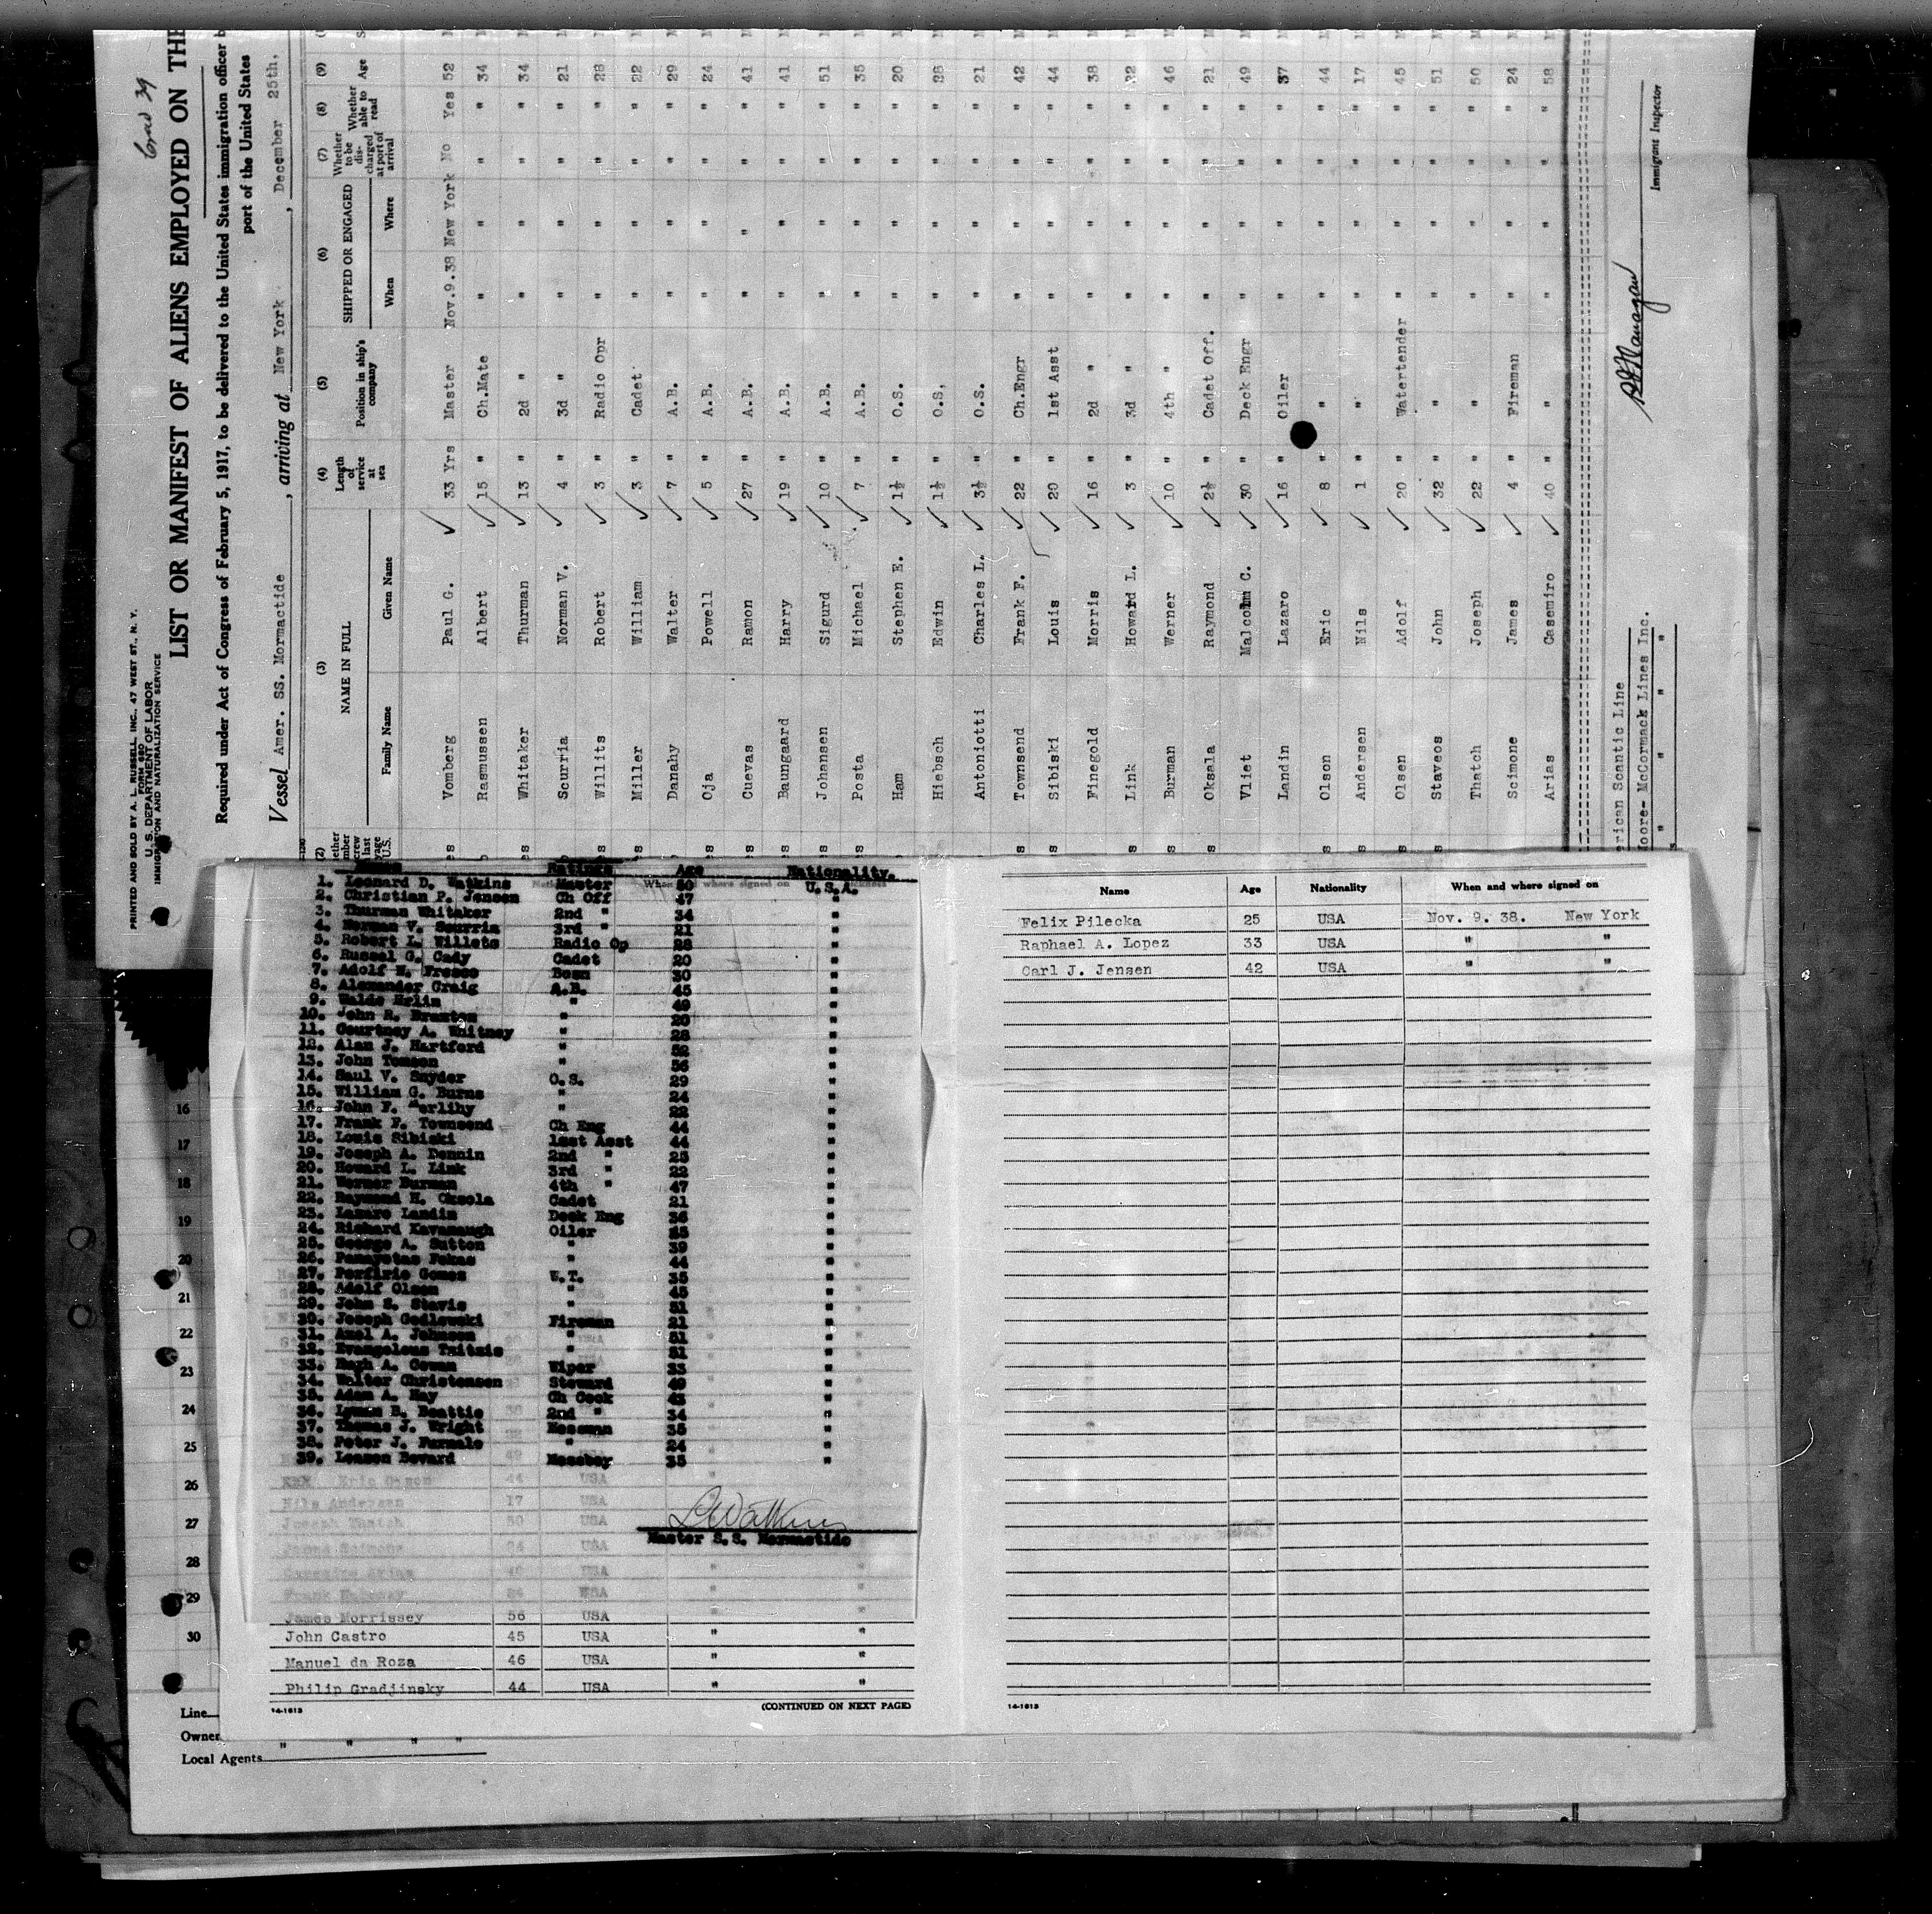 Crew 39
PRINTED AND SOLD BY A. L. RUSSELL, INC., 47 WEST ST., N. Y.
FORM 680
U. S. DEPARTMENT OF LABOR
IMMIGRATION AND NATURALIZATION SERVICE
LIST OR MANIFEST OF ALIENS EMPLOYED ON THE
Required under Act of Congress of February 5, 1917, to be delivered to the United States immigration officer b
port of the United States
Vessel Amer. SS. Mormactide, arriving at New York, December 25th,
(2) (3) (4) (5) (6) (7) (8) (9)
NAME IN FULL Length of service at sea Position in ship's company SHIPPED OR ENGAGED Whether to be discharged at port of arrival Whether able to read Age
Family Name Given Name When Where
Vomberg Paul G. 33 Yrs Master Nov.9.38 New York No Yes 52
Rasmussen Albert 15 " Ch.Mate " " " " 34
Whitaker Thurman 13 " 2d " " " " " 34
Scurria Norman V. 4 " 3d " " " " " 21
Willits Robert 3 " Radio Opr " " " " 28
Miller William 3 " Cadet " " " " 22
Danahy Walter 7 " A.B. " " " " 29
Oja Powell 5 " A.B. " " " " 24
Cuevas Ramon 27 " A.B. " " " " 41
Baungaard Harry 19 " A.B. " " " " 41
Johansen Sigurd 10 " A.B. " " " " 51
Posta Michael 7 " A.B. " " " " 35
Ham Stephen E. 1½ " O.S. " " " " 20
Hiebsch Edwin 1½ " O.S, " " " " 28
Antoniotti Charles L. 3½ " O.S. " " " " 21
Townsend Frank F. 22 " Ch.Engr " " " " 42
Sibiski Louis 20 " 1st Asst " " " " 44
Finegold Morris 16 " 2d " " " " " 38
Link Howard L. 3 " 3d " " " " " 32
Burman Werner 10 " 4th " " " " " 46
Oksala Raymond 2½ " Cadet Off. " " " " 21
Vliet Malcolm C. 30 " Deck Engr " " " " 49
Landin Lazaro 16 " Oiler " " " " 37
Olson Eric 8 " " " " " " 44
Andersen Nils 1 " " " " " " 17
Olsen Adolf 20 " Watertender " " " " 45
Staveos John 32 " " " " " " 51
Thatch Joseph 22 " " " " " " 50
Scimone James 4 " Fireman " " " " 24
Arias Casemiro 40 " " " " " " 58
erican Scantic Line
Moore- McCormack Lines Inc.
" " " "
Immigrant Inspector
Ratings Age Nationality.
1. Leonard D. Watkins Master 50 U.S.A.
2. Christian P. Jensen Ch Off 47 "
3. Thurman Whitaker 2nd " 34 "
4. Norman V. Scurria 3rd " 21 "
5. Robert L. Willets Radio Op 28 "
6. Russel G. Cady Cadet 20 "
7. Adolf H. Fresco Bosn 30 "
8. Alexander Craig A.B. 45 "
9. Waldo " 49 "
10. John R. Braxton " 20 "
11. Courtney A. Whitney " 28 "
12. Alan J. Hartford " 52 "
13. John Tomson " 56 "
14. Saul V. Snyder O.S. 29 "
15. William G. Burns " 24 "
16. John F. Merlihy " 22 "
17. Frank F. Townsend Ch Eng 44 "
18. Louis Sibiski 1ast Asst 44 "
19. Joseph A. Dennin 2nd " 25 "
20. Howard L. Link 3rd " 22 "
21. Werner Burman 4th " 47 "
22. Raymond H. Oksola Cadet 21 "
23. Lazaro Landin Deck Eng 36 "
24. Richard Kavanaugh Oiler 25 "
25. George A. Sutton " 39 "
26. Pekas " 44 "
27. Porfirio Gomes W.T. 35 "
28. Adolf Olsen " 45 "
29. John S. Stavis " 51 "
30. Joseph Godlewski Fireman 21 "
31. Axel A. Johnson " 51 "
32. Evangelous Tsitsis " 51 "
33. Hugh A. Cowan Wiper 33 "
34. Walter Christensen Steward 49 "
35. Adam A. May Ch Cook "
36. Lyman B. Beattie 2nd " 34 "
37. Thomas J. Wright Messman 35 "
38. Peter J. Furnale " 24 "
39. Leamon Bovard Messboy 35 "
Master S.S. Mormactide
Eric Olson 44 USA
Nils Andersen 17 USA
Joseph Thatch 50 USA
James Scimone 24 USA
James Morrissey 56 USA " "
John Castro 45 USA " "
Manuel da Roza 46 USA " "
Philip Gradjinsky 44 USA " "
14-1613 (CONTINUED ON NEXT PAGE)
Name Age Nationality When and where signed on
Felix Pilecka 25 USA Nov. 9. 38. New York
Raphael A. Lopez 33 USA " "
Carl J. Jensen 42 USA " "
14-1613
16
17
18
19
20
21
22
23
24
25
26
27
28
29
30
Line
Owner " " " "
Local Agents